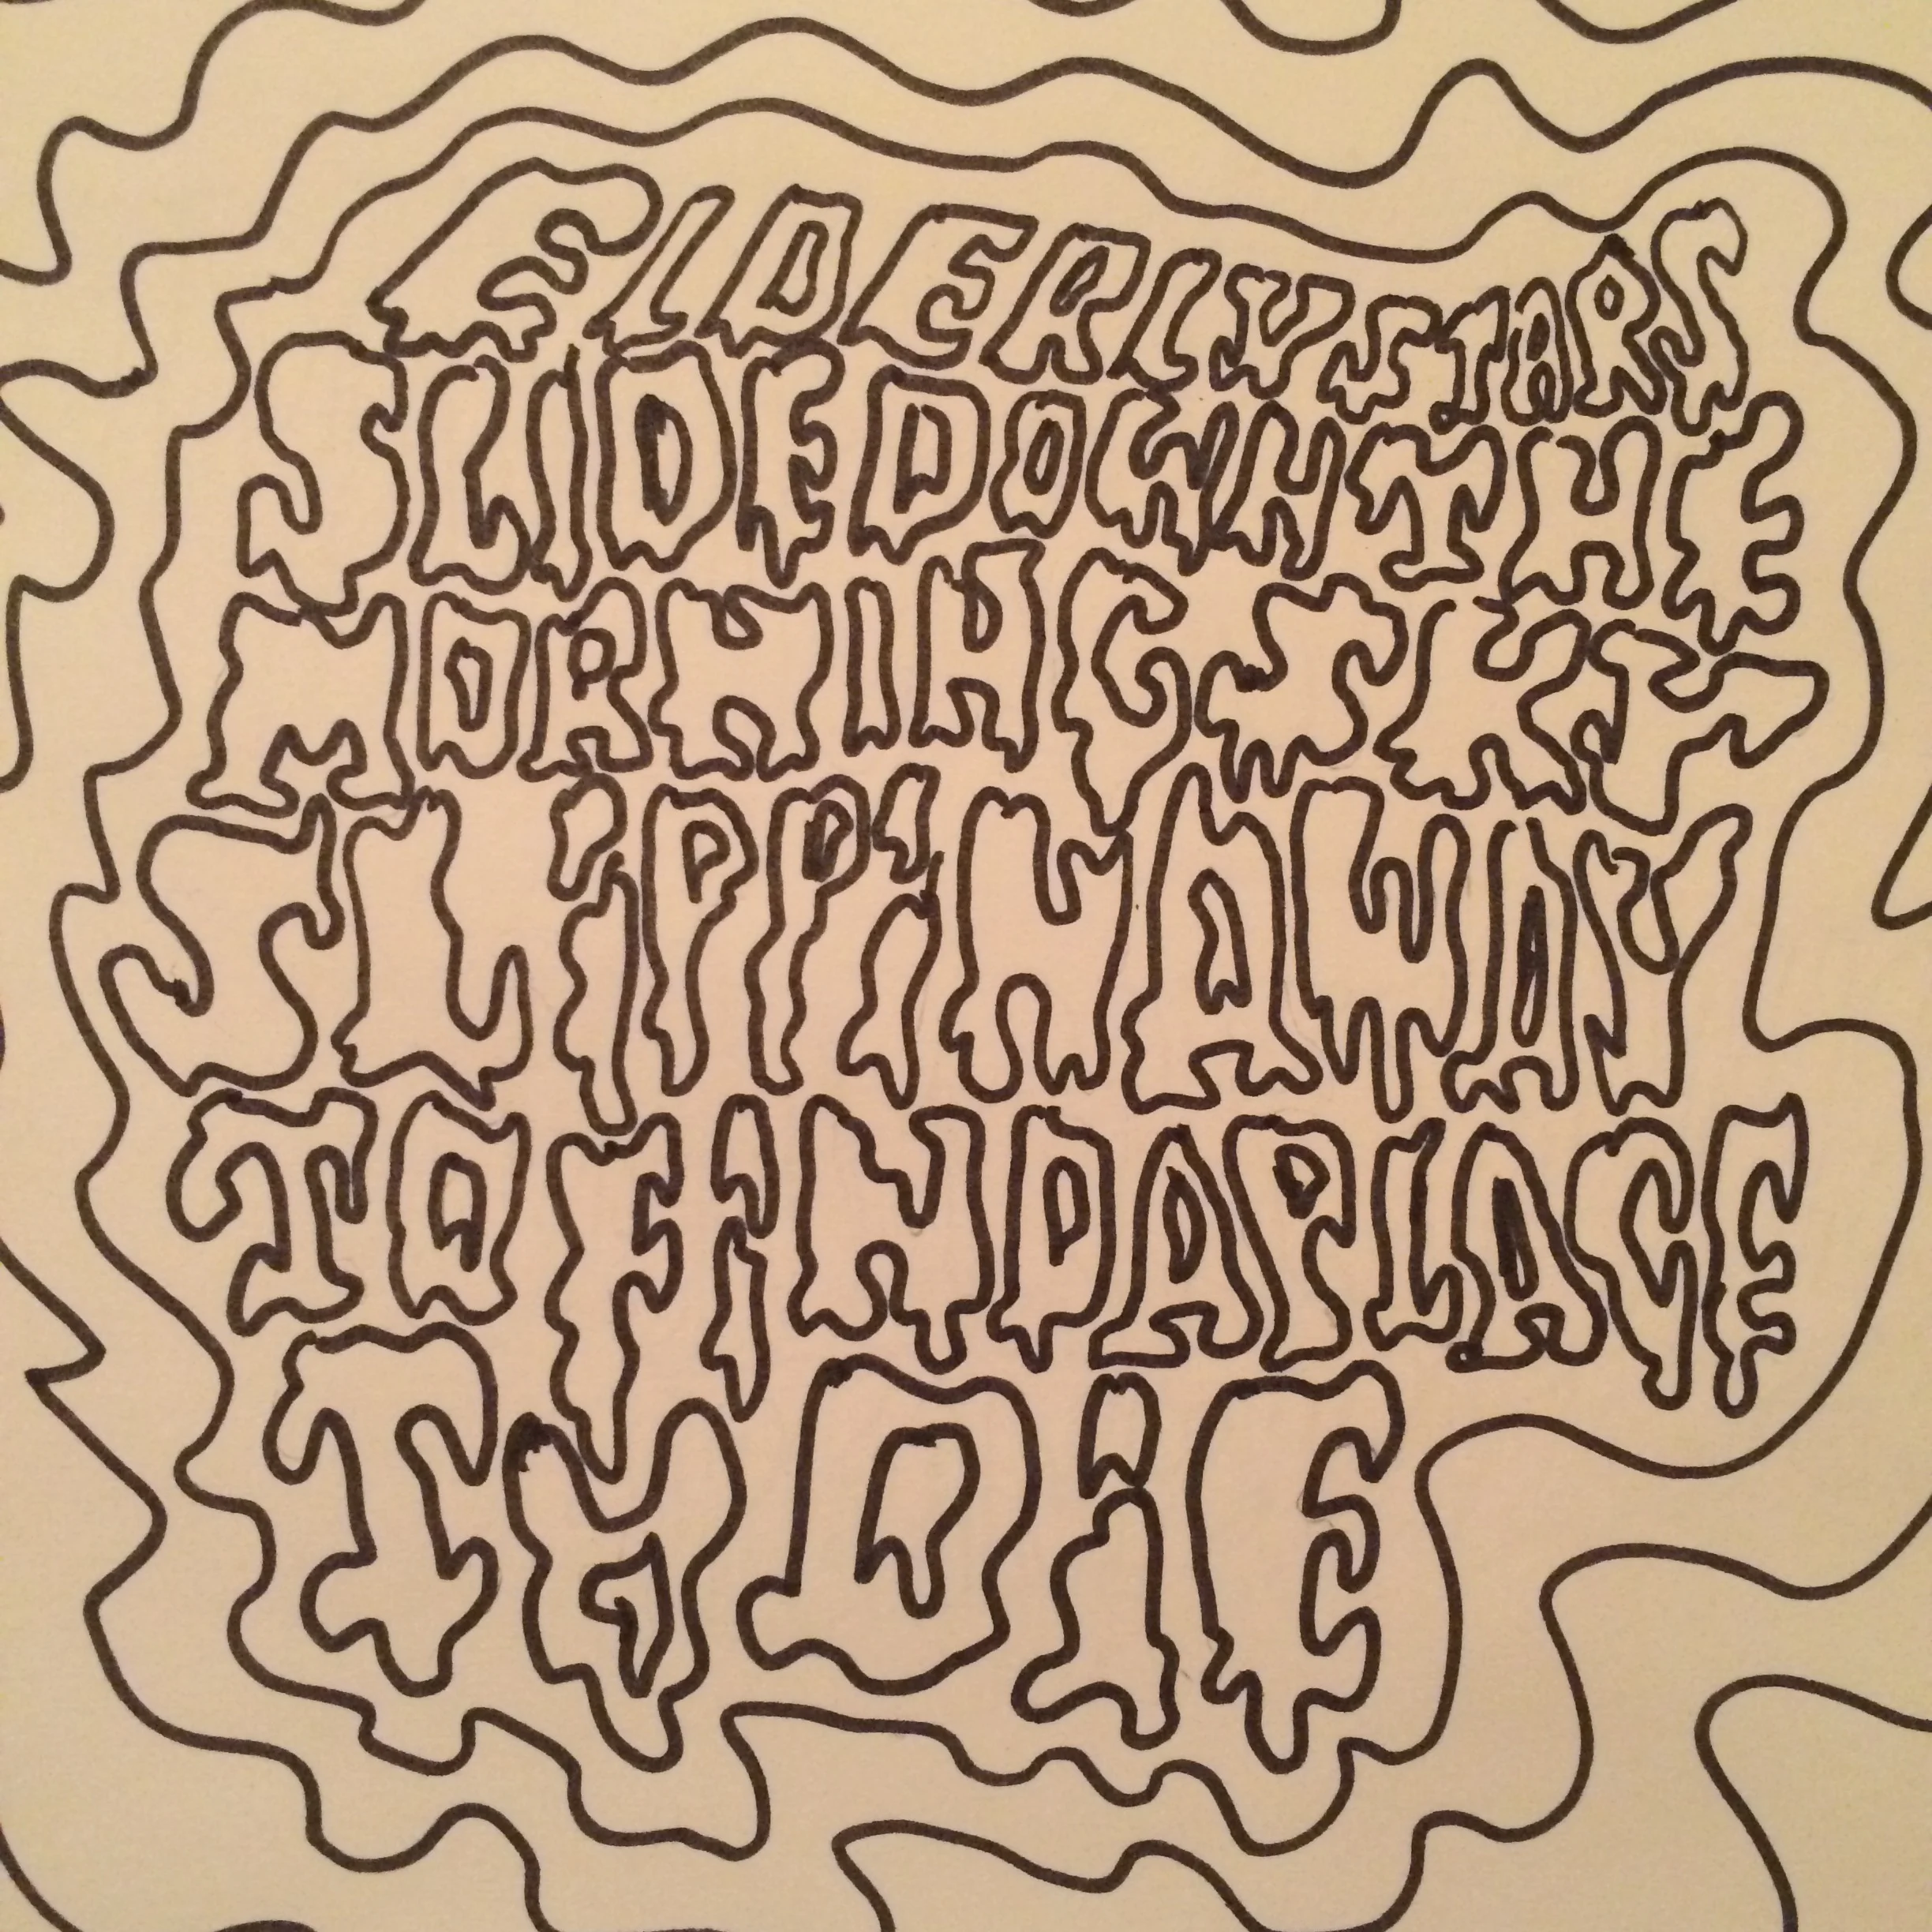 ELDERLY STARS
SLIDE DOWN THE
MORNING SKY
SLiPPiN AWAY
TO FiND A PLACE
TO DiE